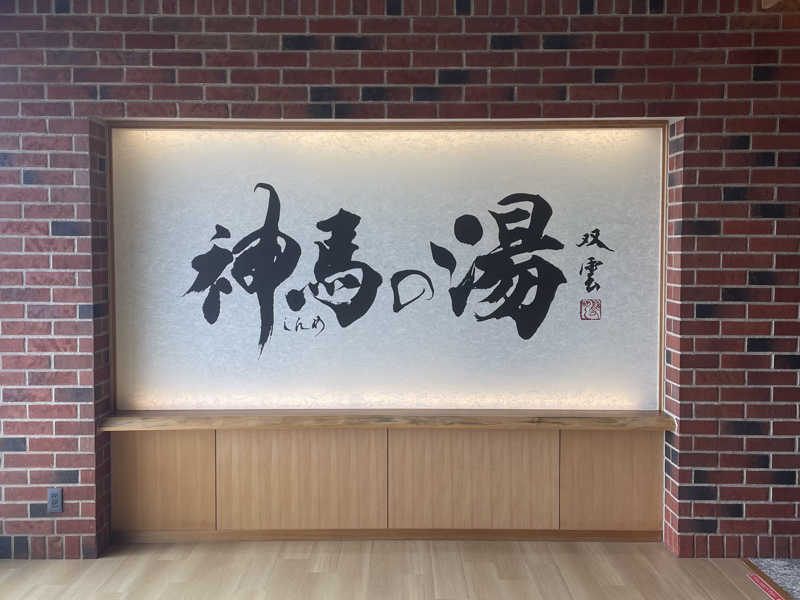 神馬の湯
しんめ
双雲